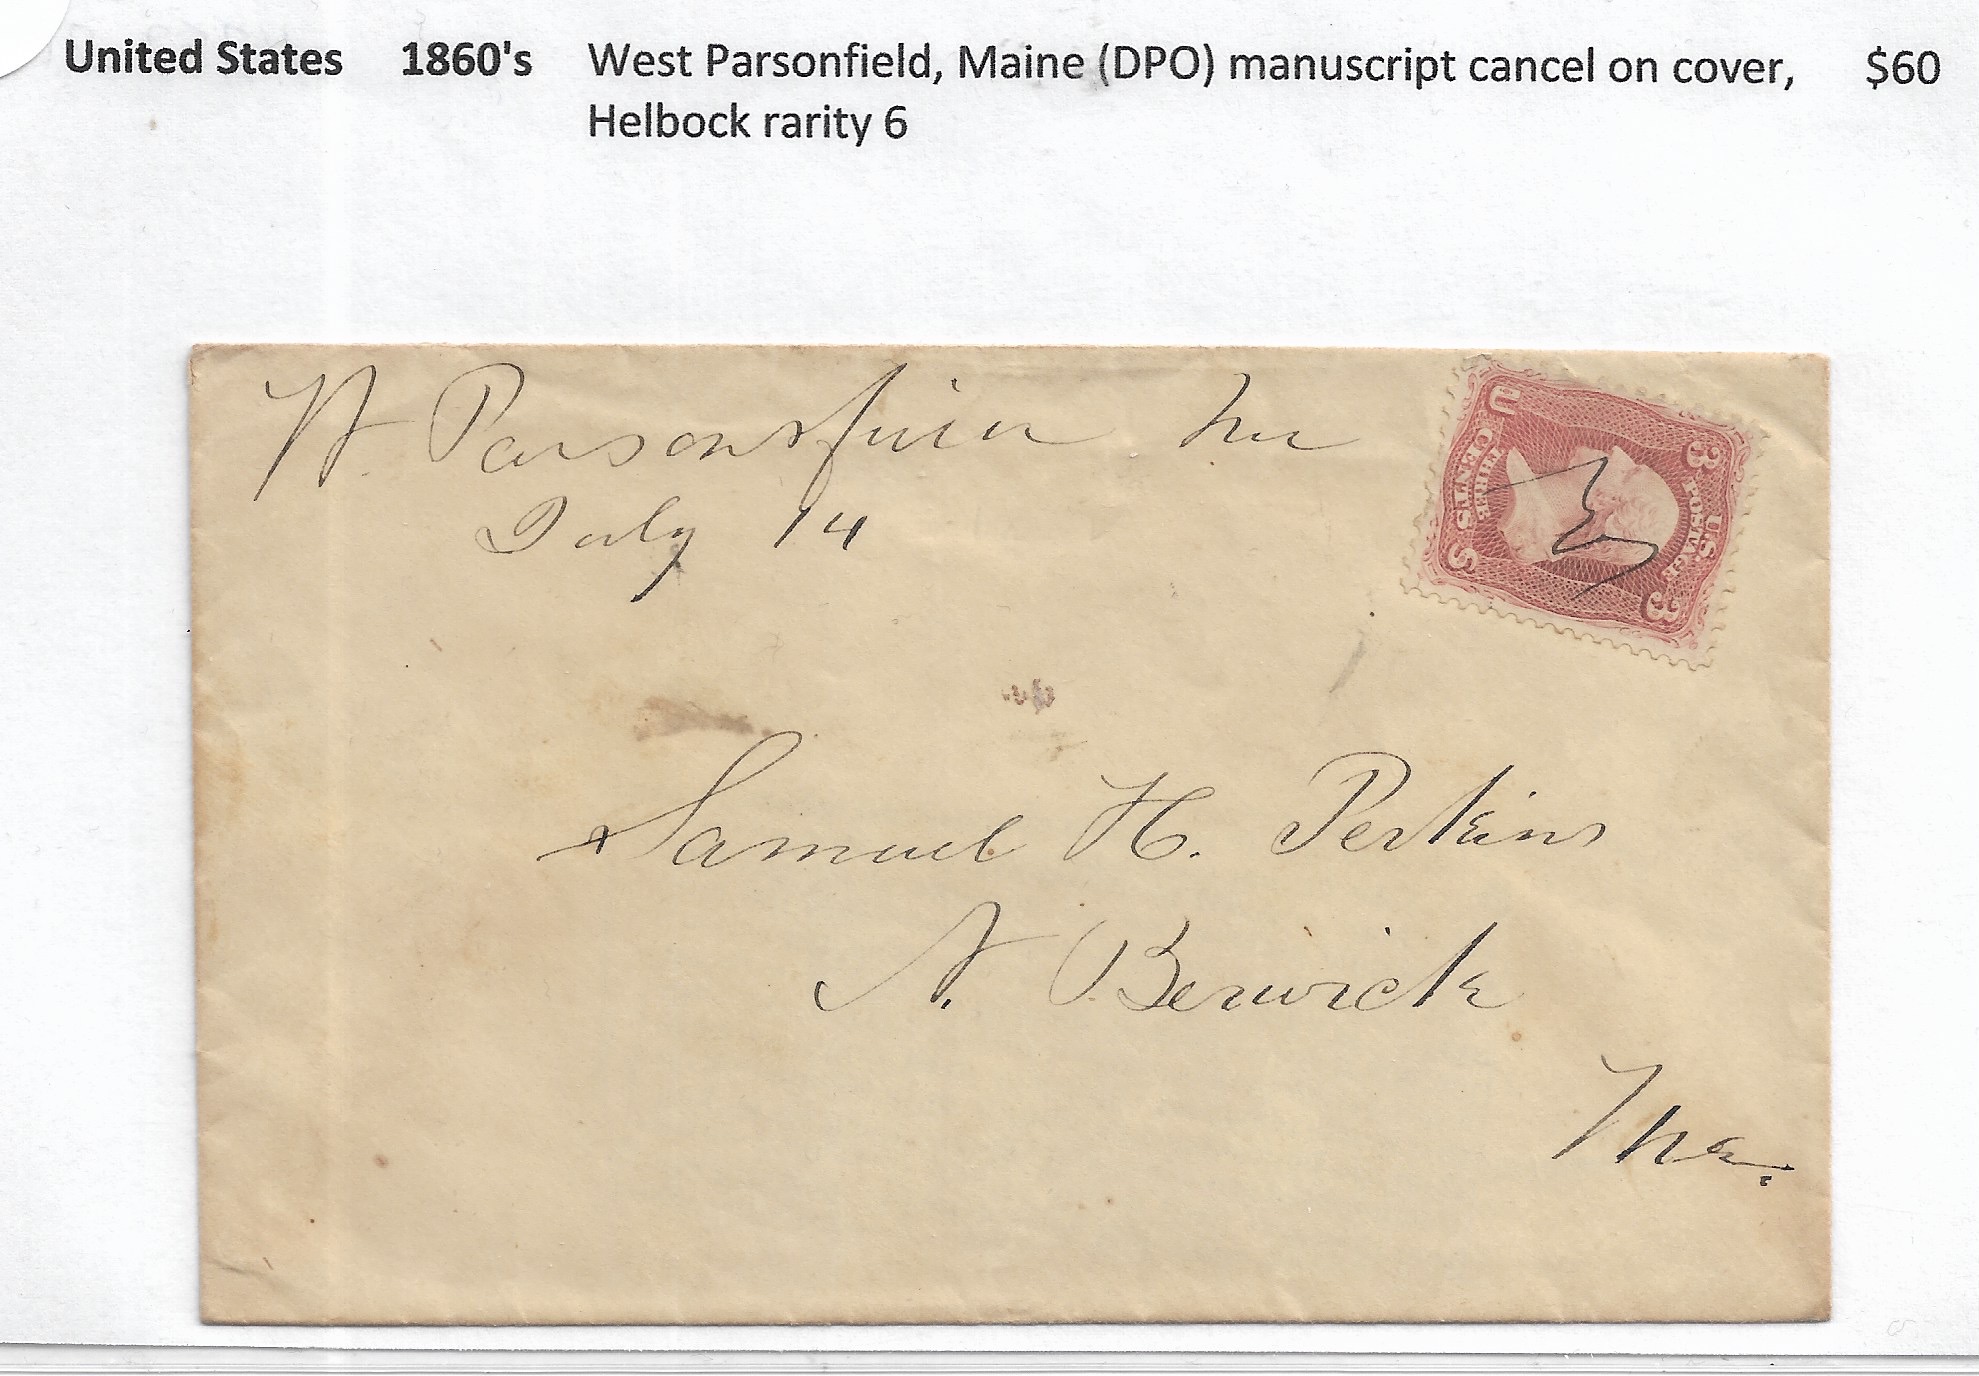 United States 1860's West Parsonfield, Maine (DPO) manuscript cancel on cover, $60
Helbock rarity 6
W. Parsonsfield Me
July 14
U S
3 3
U.S. POSTAGE
THREE
CENTS
Samuel H. Perkins
N. Berwick
Me.